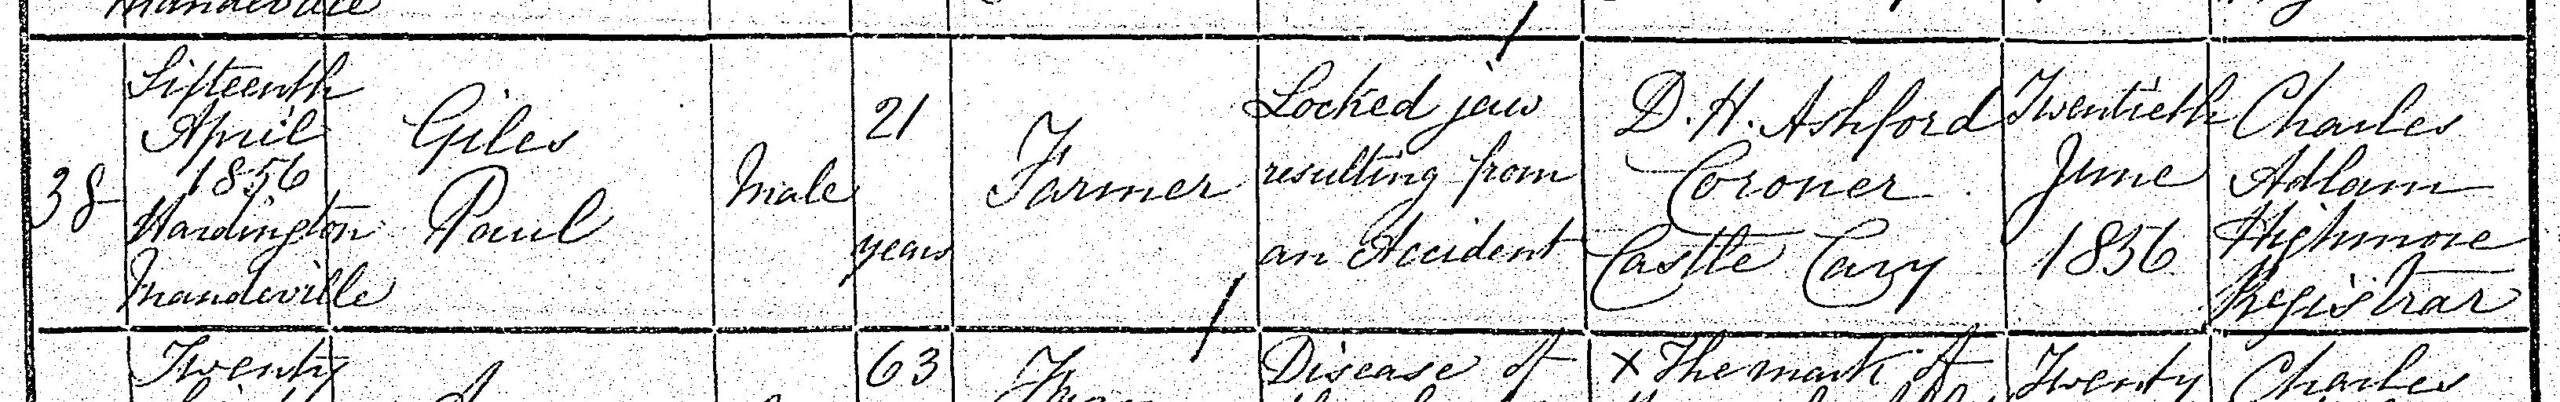 Mandeville
38
Fifteenth
April
1856
Hardington
Mandeville
Giles
Paul
Male
21
years
Farmer
Locked jaw
resulting from
an Accident
D. H. Ashford
Coroner
Castle Cary
Twentieth
June
1856
Charles
Adlam
Highmore
Registrar
Twenty
63
Disease of
X The mark of
Twenty
Charles